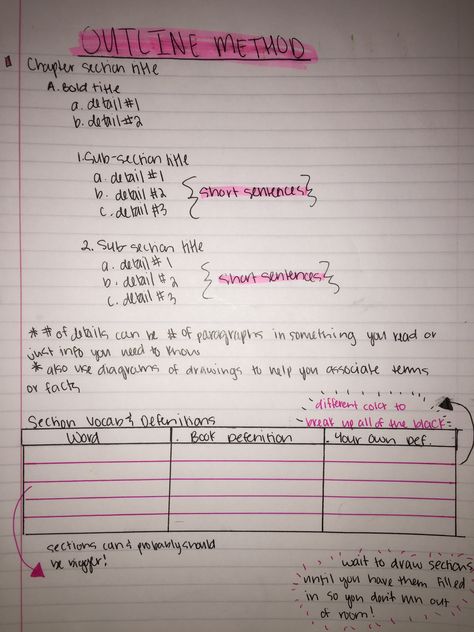 OUTLINE METHOD
Chapter section title
A. Bold title
a. detail #1
b. detail #2
1. Sub-section title
a. detail #1
b. detail #2
c. detail #3
short sentences
2. Sub section title
a. detail #1
b. detail #2
c. detail #3
short sentences
* # of details can be # of paragraphs in something you read or
just info you need to know
* also use diagrams of drawings to help you associate terms
or facts
different color to
break up all of the black
Section Vocab & Defenitions
Word
Book Defenition
Your Own Def.
sections can & probably should
be bigger!
wait to draw sections
until you have them filled
in so you don't run out
of room!